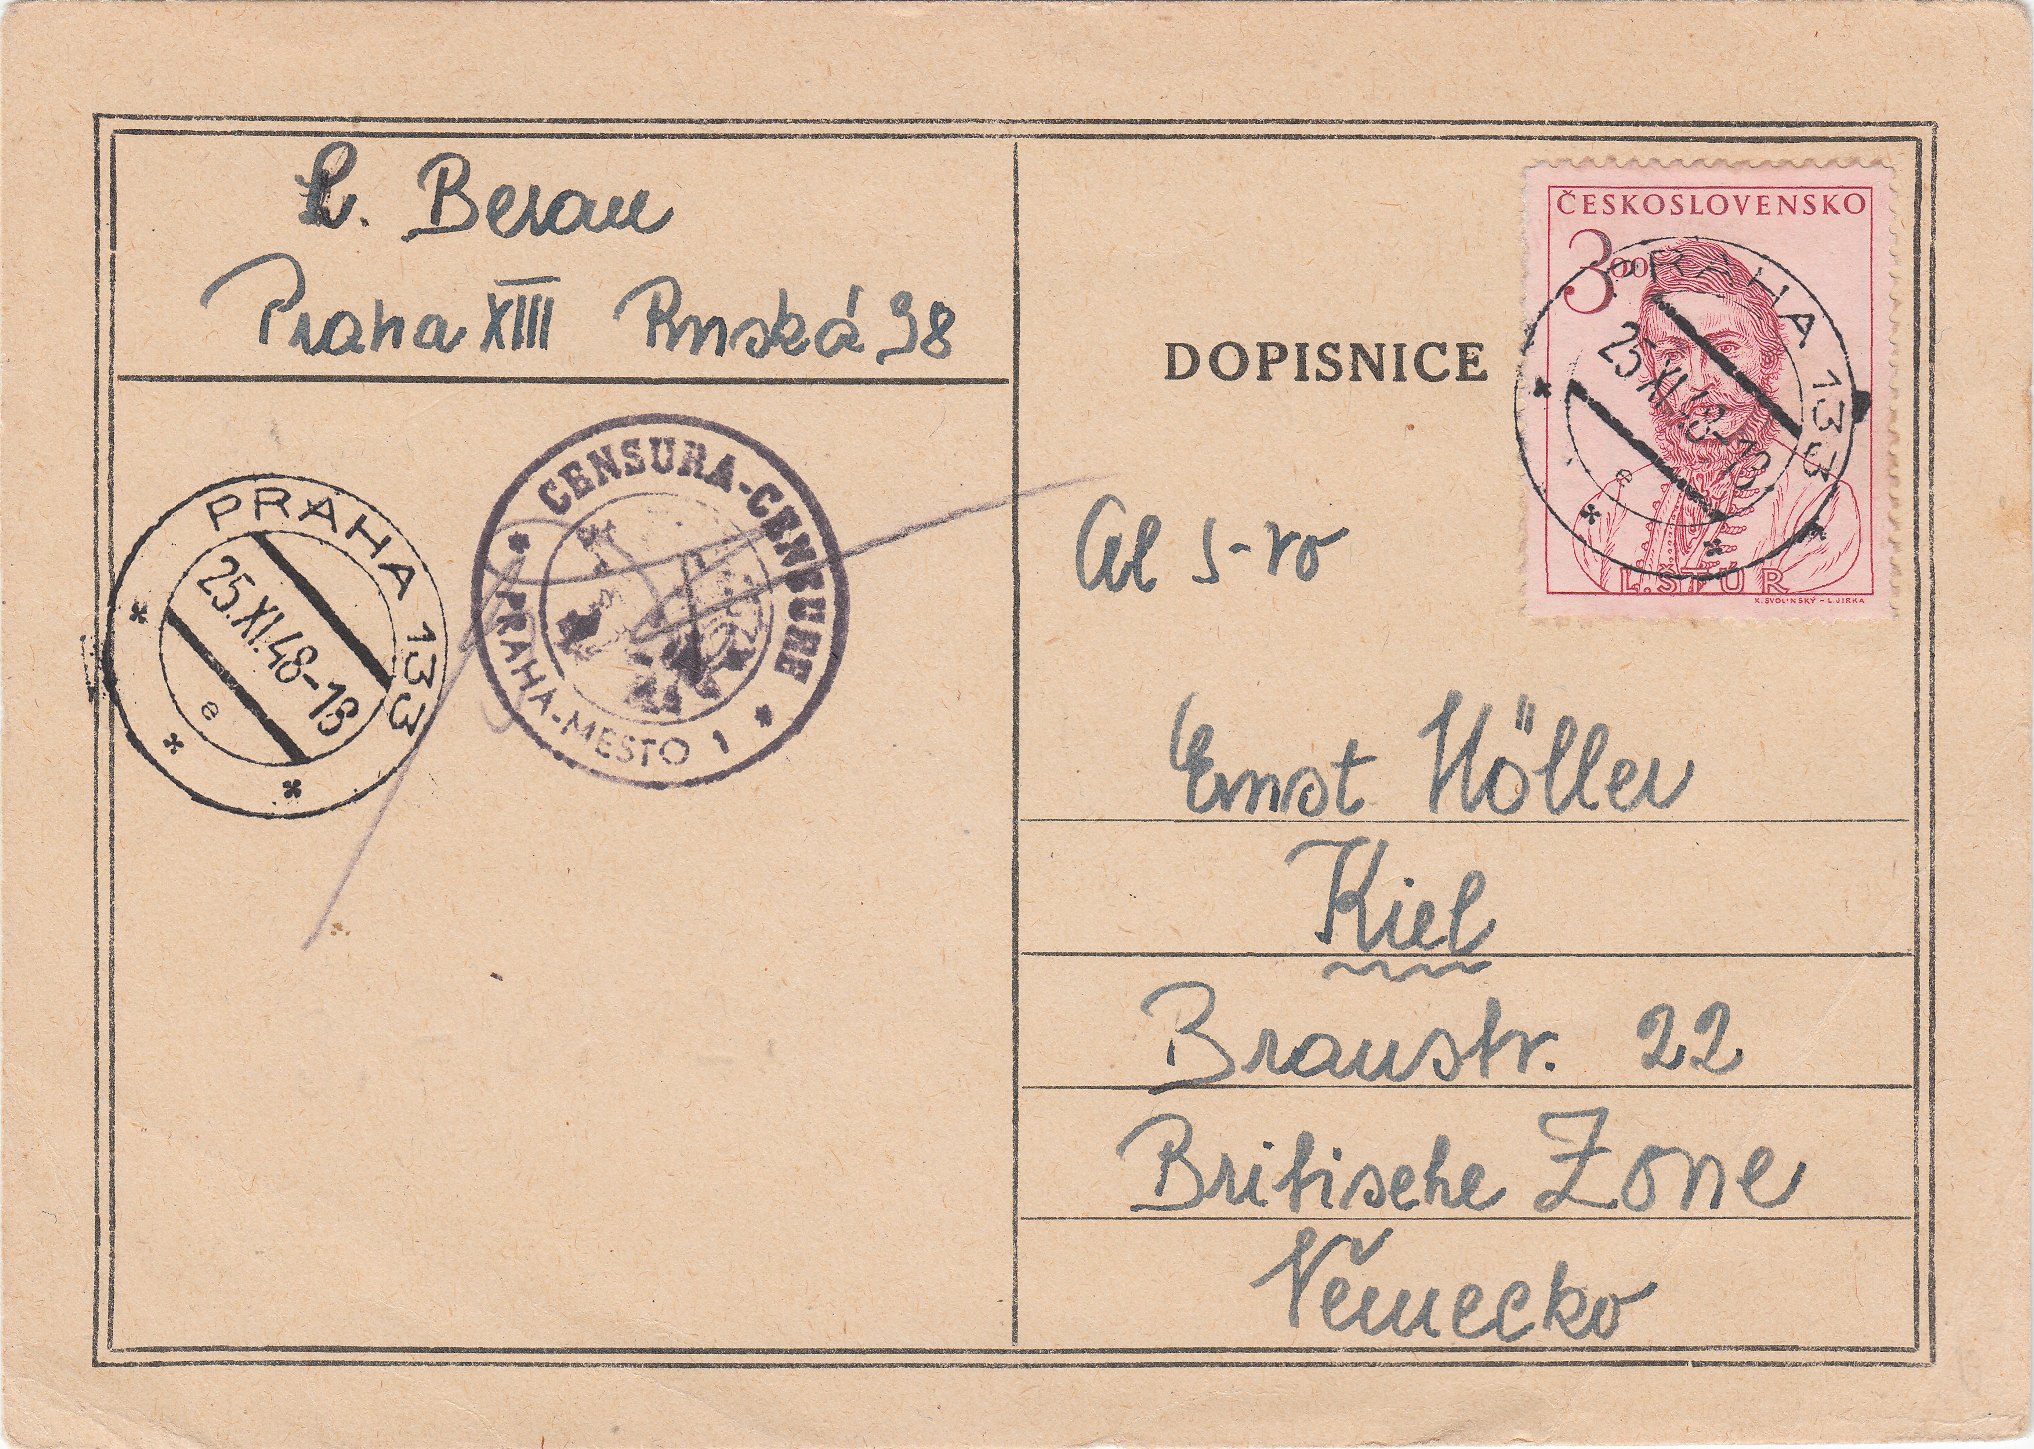 L. Beran
Praha XIII Ruská 98
DOPISNICE
ČESKOSLOVENSKO
3.00
L. ŠTÚR
K. SVOLINSKÝ - L. JIRKA
PRAHA 133
25.XI.48-18
e
PRAHA 133
25.XI.48-18
e
CENSURA-CENSURE
PRAHA-MĚSTO 1
Ernst Höller
Kiel
Braustr. 22
Britische Zone
Německo